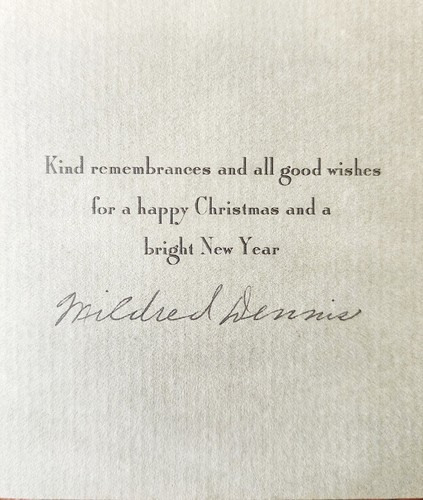 Kind remembrances and all good wishes
for a happy Christmas and a
bright New Year
Mildred Dennis